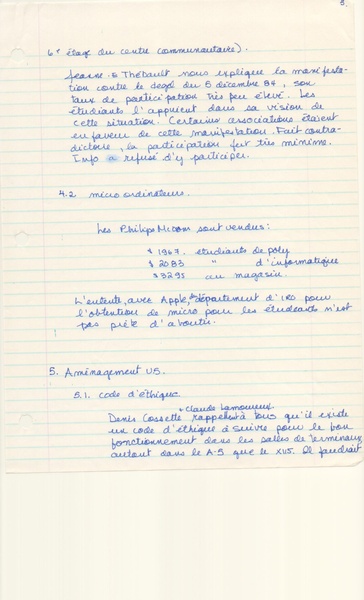 5.
6e étage du centre communautaire).
Jeanne Thébault nous explique la manifesta-
tion contre le dégel du 5 décembre 84, son
taux de participation très peu élevé. Les
étudiants l'appuient dans sa vision de
cette situation. Certaines associations étaient
en faveur de cette manifestation. Fait contra-
dictoire, la participation fut très minime.
Info a refusé d'y participer.
4.2 micro ordinateurs.
Les Philips Micom sont vendus:
$ 1967. étudiants de poly
$ 2083 " d'informatique
$ 3295 au magasin.
L'entente, avec Apple, département d'IRO pour
l'obtention de micro pour les étudiants n'est
pas prête d'aboutir.
5. Aménagement V5.
5.1. code d'éthique
+ Claude Lamoureux
Denis Cossette rappellent à tous qu'il existe
un code d'éthique à suivre pour le bon
fonctionnement dans les salles de terminaux
autant dans le A-5 que le X-V5. Il faudrait